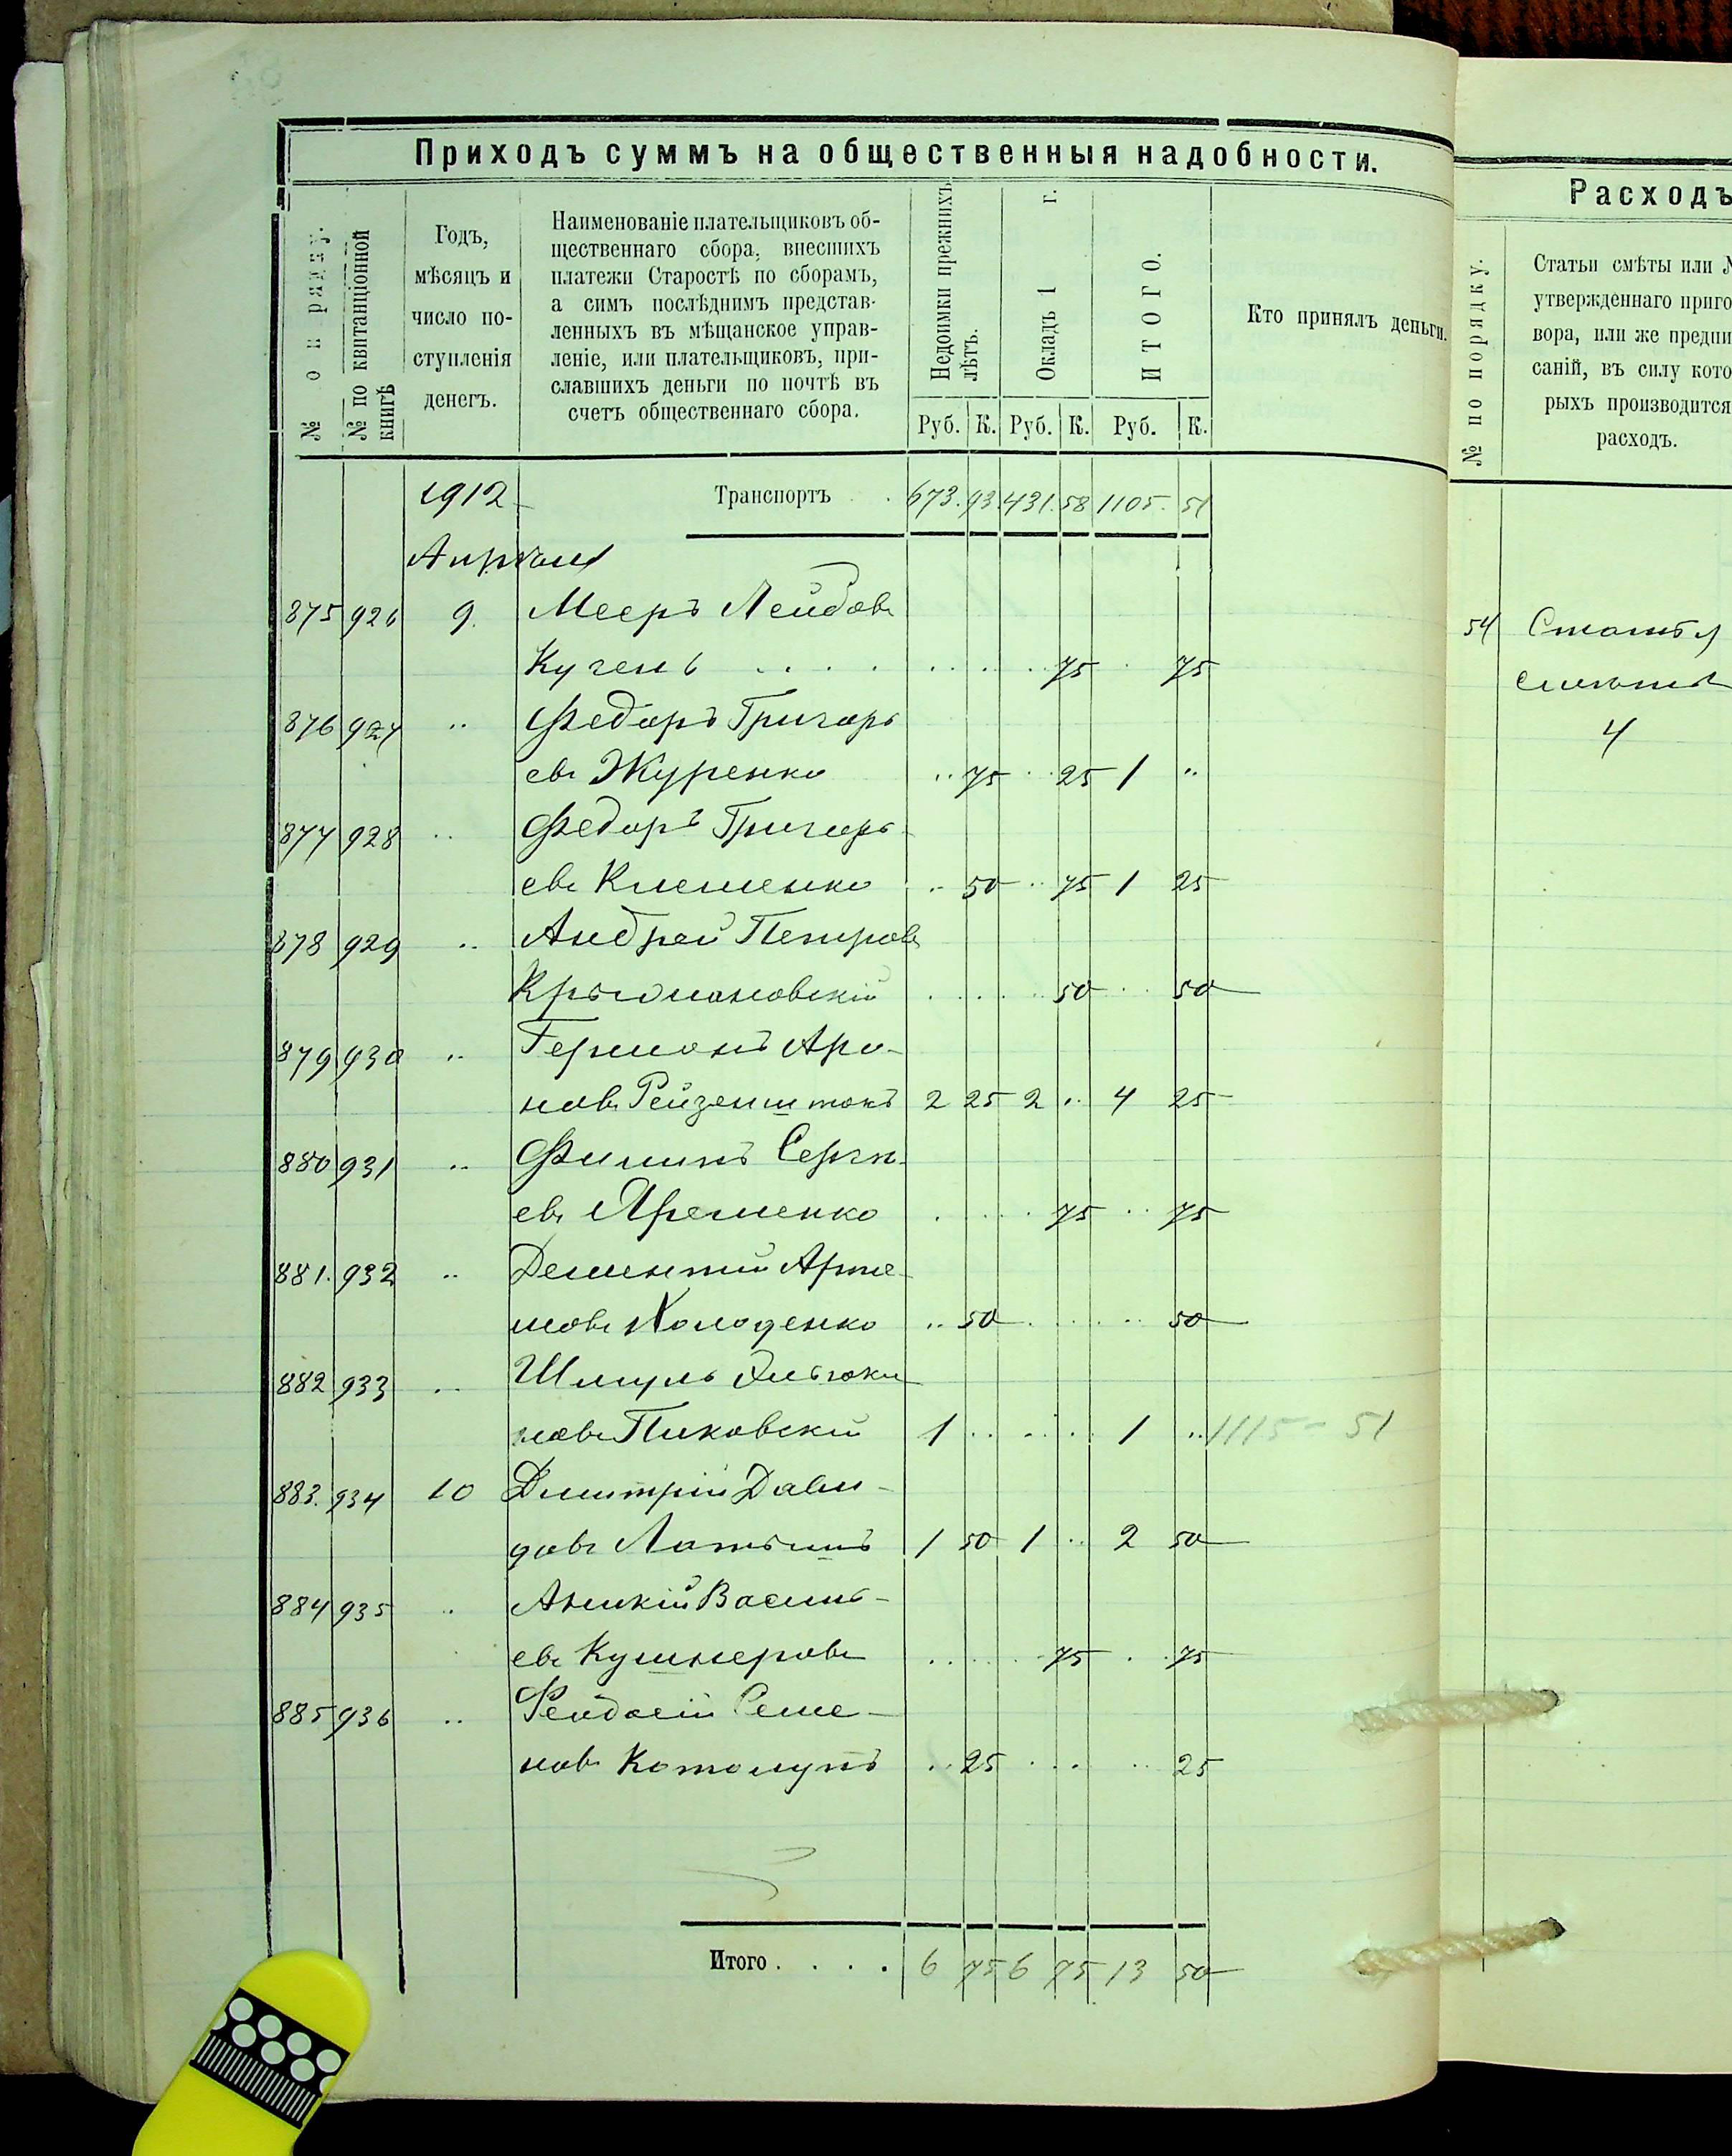 Приходъ суммъ на общественныя надобности.
№ по квитанціонной книгѣ
Годъ,
мѣсяцъ и
число по-
ступленія
денегъ.
Наименованіе плательщиковъ об-
щественнаго сбора, внесшихъ
платежи Старостѣ по сборамъ,
а симъ послѣднимъ представ-
ленныхъ въ мѣщанское управ-
леніе, или плательщиковъ, при-
славшихъ деньги по почтѣ въ
счетъ общественнаго сбора.
Недоимки прежнихъ
лѣтъ.
Окладъ 1 г.
ИТОГО.
Кто принялъ деньги.
Руб. К. Руб. К. Руб. К.
1912 Транспортъ . . 673. 93 431. 58 1105. 51
Апрѣля
875 926 9. Мееръ Лейбовъ
Кучень . . . . 75 75
876 927 .. Федоръ Григорь
евъ Журенко .. 75 .. 25 1 ..
877 928 .. Федоръ Григорь-
евъ Клеменко .. 50 .. 75 1 25
878 929 .. Андрей Петровъ
50 50
879 930 .. Германъ Аро-
новъ Рейзенштокъ 2 25 2 .. 4 25
880 931 .. Филипъ Сергѣ-
евъ Яременко 75 75
881. 932 .. Дементій Арте-
мовъ Колоденко .. 50 50
882 933 .. Шмуль
новъ Пиковскій 1 .. 1 .. 1115 - 51
883. 934 10 Дмитрій Дави-
довъ Латышъ 1 50 1 .. 2 50
884 935 .. Аникій Василь-
евъ Кушнеровъ 75 75
885 936 .. Феодосій Семе-
новъ Котолупъ .. 25 25
Итого . . . . 6 75 6 75 13 50
Расходъ
№ по порядку.
Статьи смѣты или №
утвержденнаго приго
вора, или же предпи
саній, въ силу кото
рыхъ производится
расходъ.
54 Статья
4